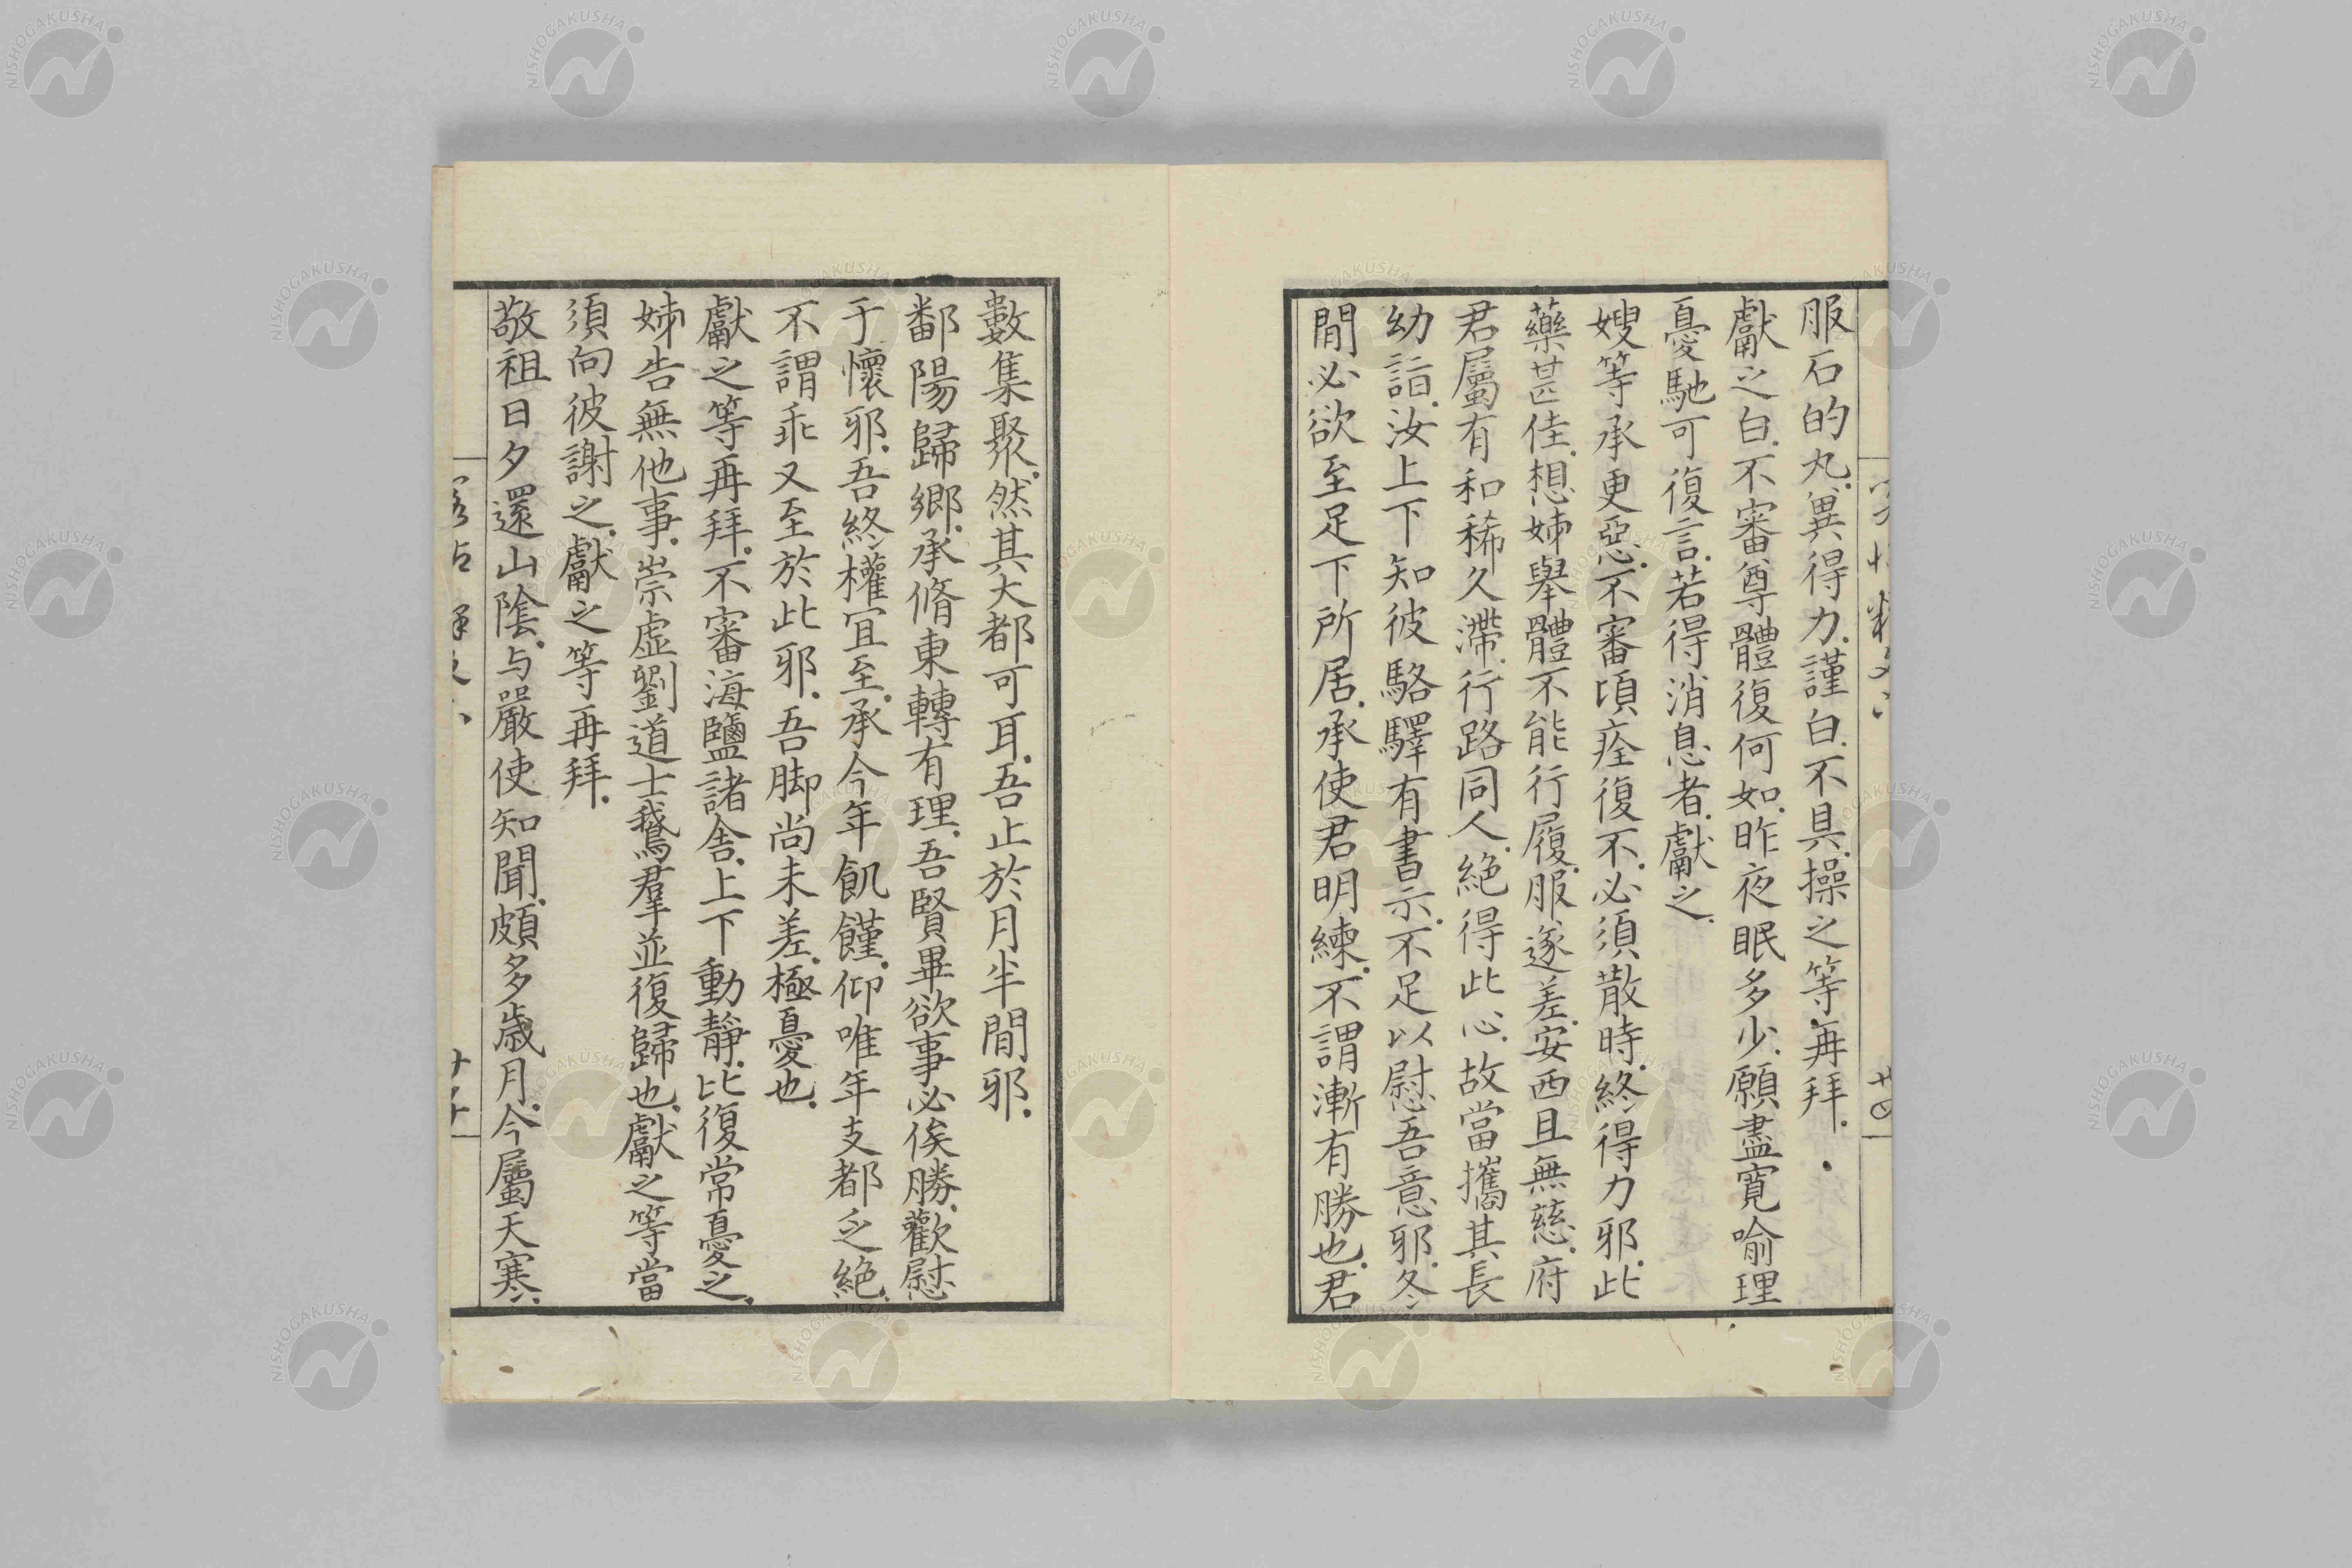 服石的丸.異得力.謹白.不具.操之等再拜.
獻之白.不審尊體復何如.昨夜眠多少.願盡寬喻理
憂馳可復言.若得消息者.獻之.
嫂等承更惡.不審頃痊復不.必須散時.終得力邪.此
藥甚佳.想姊舉體不能行履.服遂差.安西且無慈.府
君屬有和稀久滯.行路同人.絕得此心.故當攜其長
幼詣.汝上下知彼駱驛有書示.不足以慰吾意邪.冬
間必欲至足下所居.承使君明練.不謂漸有勝也.君
數集聚.然其大都可耳.吾止於月半間邪.
鄱陽歸鄉.承脩東轉有理.吾賢畢欲事必俟勝.歡慰
于懷邪.吾終權宜至.承今年飢饉.仰唯年支都乏絕.
不謂乖又至於此邪.吾脚尚未差.極憂也.
獻之等再拜.不審海鹽諸舍.上下動靜.比復常憂之.
姊告無他事.崇虛劉道士鵝羣並復歸也.獻之等當
須向彼謝之.獻之等再拜.
敬祖日夕還山陰.与嚴使知聞.頗多歲月.今屬天寒.